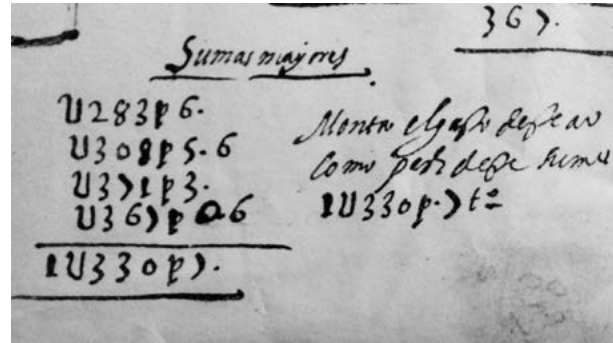 367.
Sumas mayores
U283p6.
U308p5.6
U371p3.
U367p0.6
1U330p7.
Monta el gasto deste
Como
1U330p.7 to